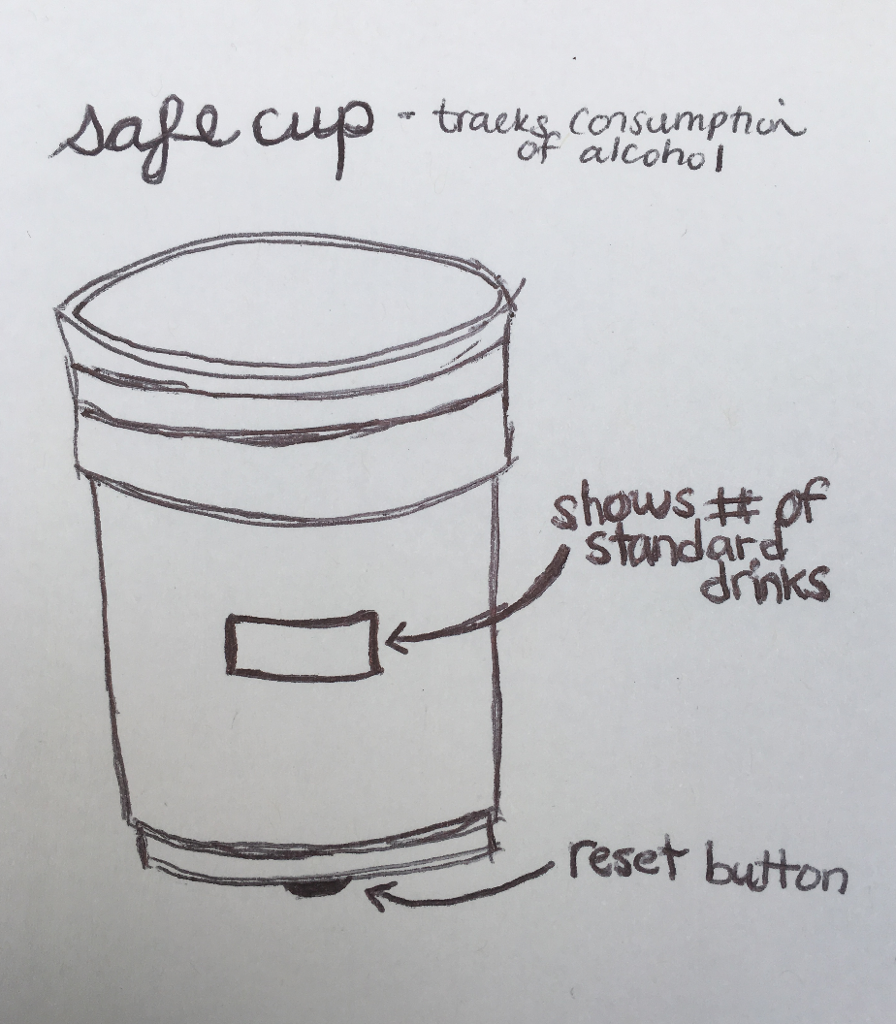 safe cup - tracks consumption
of alcohol
shows # of
standard
drinks
reset button